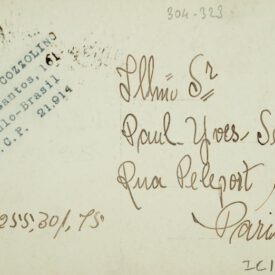 304-323
COZZOLINO
antos, 161
ulo-Brasil
C.P. 21.914
Illmo Sr
Paul Yves Se
Rua Peleport
Paris
255,301,75